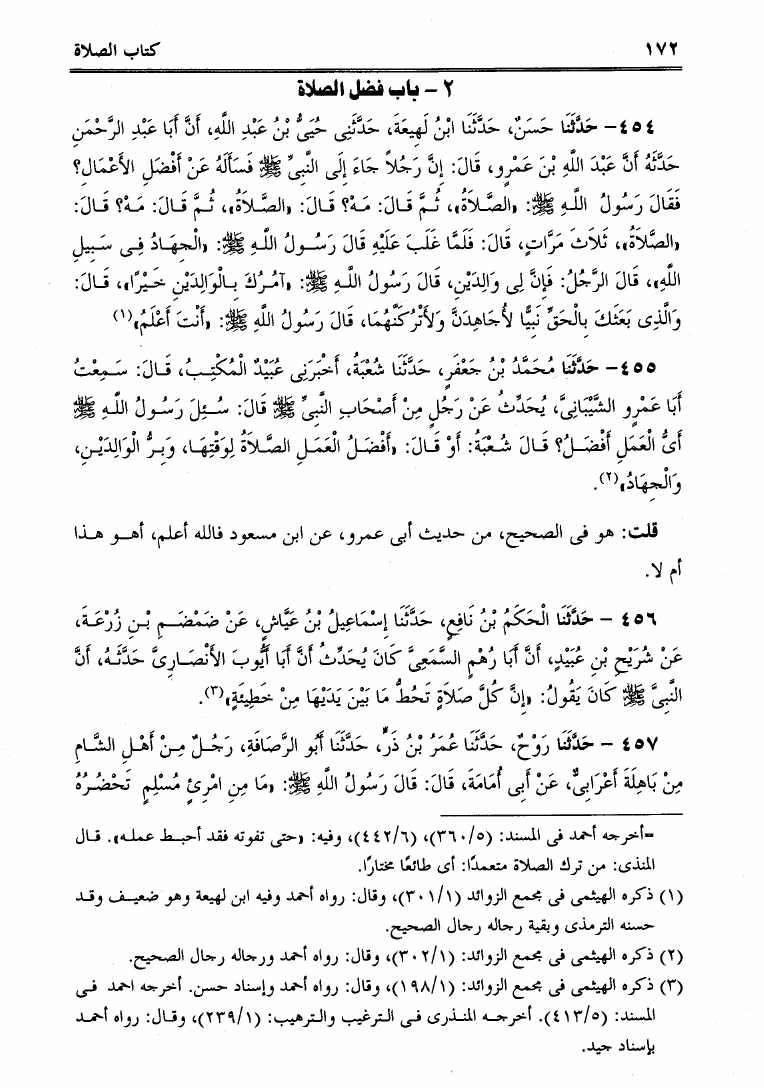 ١٧٢ كتاب الصلاة
٢ – باب فضل الصلاة
٤٥٤– حَدَّثَنَا حَسَنٌ، حَدَّثَنَا ابْنُ لَهِيعَةَ، حَدَّثَنِى حُيَىُّ بْنُ عَبْدِ اللَّهِ، أَنَّ أَبَا عَبْدِ الرَّحْمَنِ
حَدَّثَهُ أَنَّ عَبْدَ اللَّهِ بْنَ عَمْرٍو، قَالَ: إِنَّ رَجُلاً جَاءَ إِلَى النَّبِىِّ ﷺ فَسَأَلَهُ عَنْ أَفْضَلِ الأَعْمَالِ؟
فَقَالَ رَسُولُ اللَّهِ ﷺ: «الصَّلاَةُ»، ثُمَّ قَالَ: مَهْ؟ قَالَ: «الصَّلاَةُ»، ثُمَّ قَالَ: مَهْ؟ قَالَ:
«الصَّلاَةُ»، ثَلاَثَ مَرَّاتٍ، قَالَ: فَلَمَّا غَلَبَ عَلَيْهِ قَالَ رَسُولُ اللَّهِ ﷺ: «الْجِهَادُ فِى سَبِيلِ
اللَّهِ»، قَالَ الرَّجُلُ: فَإِنَّ لِى وَالِدَيْنِ، قَالَ رَسُولُ اللَّهِ ﷺ: «آمُرُكَ بِالْوَالِدَيْنِ خَيْرًا»، قَالَ:
وَالَّذِى بَعَثَكَ بِالْحَقِّ نَبِيًّا لأُجَاهِدَنَّ وَلأَتْرُكَنَّهُمَا، قَالَ رَسُولُ اللَّهِ ﷺ: «أَنْتَ أَعْلَمُ»(١)
٤٥٥– حَدَّثَنَا مُحَمَّدُ بْنُ جَعْفَرٍ، حَدَّثَنَا شُعْبَةُ، أَخْبَرَنِى عُبَيْدٌ الْمُكْتِبُ، قَالَ: سَمِعْتُ
أَبَا عَمْرٍو الشَّيْبَانِىَّ، يُحَدِّثُ عَنْ رَجُلٍ مِنْ أَصْحَابِ النَّبِىِّ ﷺ قَالَ: سُئِلَ رَسُولُ اللَّهِ ﷺ
أَىُّ الْعَمَلِ أَفْضَلُ؟ قَالَ شُعْبَةُ: أَوْ قَالَ: «أَفْضَلُ الْعَمَلِ الصَّلاَةُ لِوَقْتِهَا، وَبِرُّ الْوَالِدَيْنِ،
وَالْجِهَادُ»(٢).
قلت: هو فى الصحيح، من حديث أبى عمرو، عن ابن مسعود فالله أعلم، أهو هذا
أم لا.
٤٥٦ – حَدَّثَنَا الْحَكَمُ بْنُ نَافِعٍ، حَدَّثَنَا إِسْمَاعِيلُ بْنُ عَيَّاشٍ، عَنْ ضَمْضَمِ بْنِ زُرْعَةَ،
عَنْ شُرَيْحِ بْنِ عُبَيْدٍ، أَنَّ أَبَا رُهْمٍ السَّمَعِىَّ كَانَ يُحَدِّثُ أَنَّ أَبَا أَيُّوبَ الأَنْصَارِىَّ حَدَّثَهُ، أَنَّ
النَّبِىَّ ﷺ كَانَ يَقُولُ: «إِنَّ كُلَّ صَلاَةٍ تَحُطُّ مَا بَيْنَ يَدَيْهَا مِنْ خَطِيئَةٍ»(٣).
٤٥٧ – حَدَّثَنَا رَوْحٌ، حَدَّثَنَا عُمَرُ بْنُ ذَرٍّ، حَدَّثَنَا أَبُو الرَّصَافَةِ، رَجُلٌ مِنْ أَهْلِ الشَّامِ
مِنْ بَاهِلَةَ أَعْرَابِىٌّ، عَنْ أَبِى أُمَامَةَ، قَالَ: قَالَ رَسُولُ اللَّهِ ﷺ: «مَا مِنِ امْرِئٍ مُسْلِمٍ تَحْضُرُهُ
=أخرجه أحمد فى المسند: (٣٦٠/٥)، (٤٤٢/٦)، وفيه: «حتى تفوته فقد أحبط عمله». قال
المنذى: من ترك الصلاة متعمدًا: أى طائعًا مختارًا.
(١) ذكره الهيثمى فى مجمع الزوائد: (٣٠١/١)، وقال: رواه أحمد وفيه ابن لهيعة وهو ضعيف وقد
حسنه الترمذى وبقية رجاله رجال الصحيح.
(٢) ذكره الهيثمى فى مجمع الزوائد: (٣٠٢/١)، وقال: رواه أحمد ورجاله رجال الصحيح.
(٣) ذكره الهيثمى فى مجمع الزوائد: (١٩٨/١)، وقال: رواه أحمد وإسناد حسن. أخرجه احمد فى
المسند: (٤١٣/٥). أخرجه المنذرى فى الترغيب والترهيب: (٢٣٩/١)، وقال: رواه أحمد
بإسناد جيد.